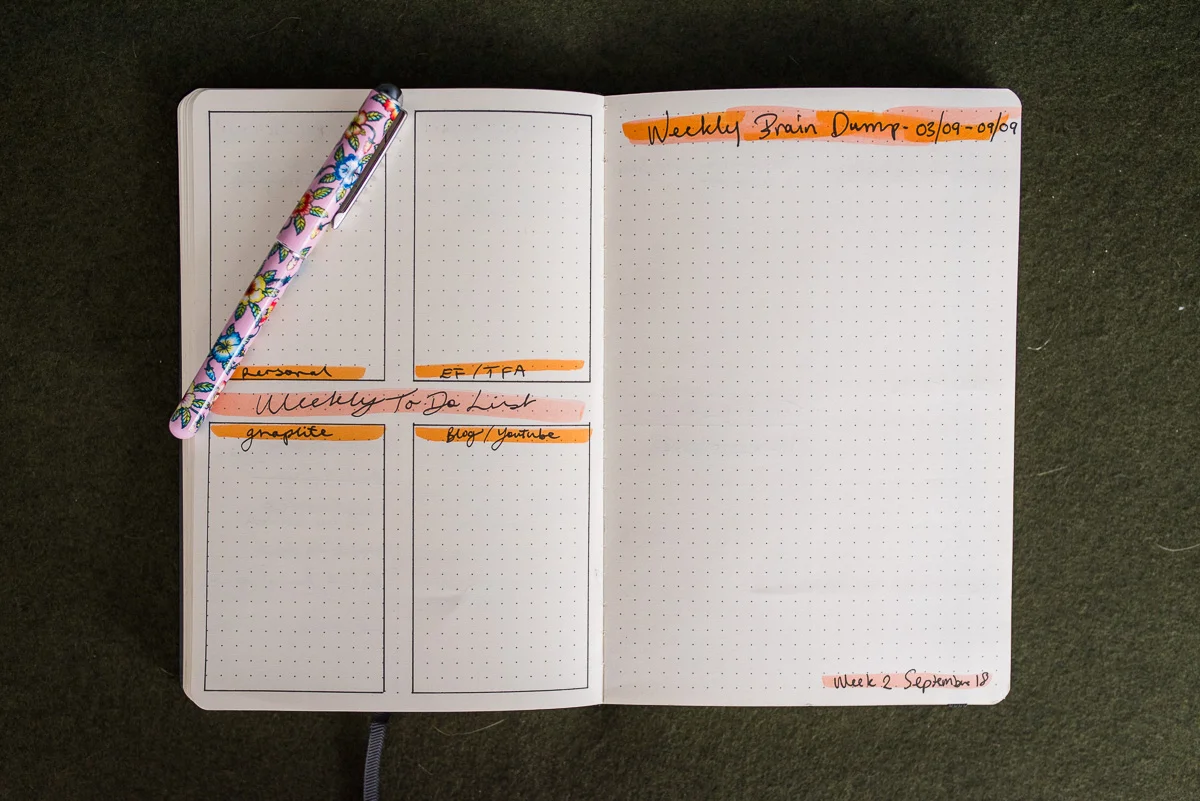 Personal
EF/TFA
Weekly To Do List
graphite
Blog/Youtube
Weekly Brain Dump - 03/09 - 09/09
Week 2 September 18